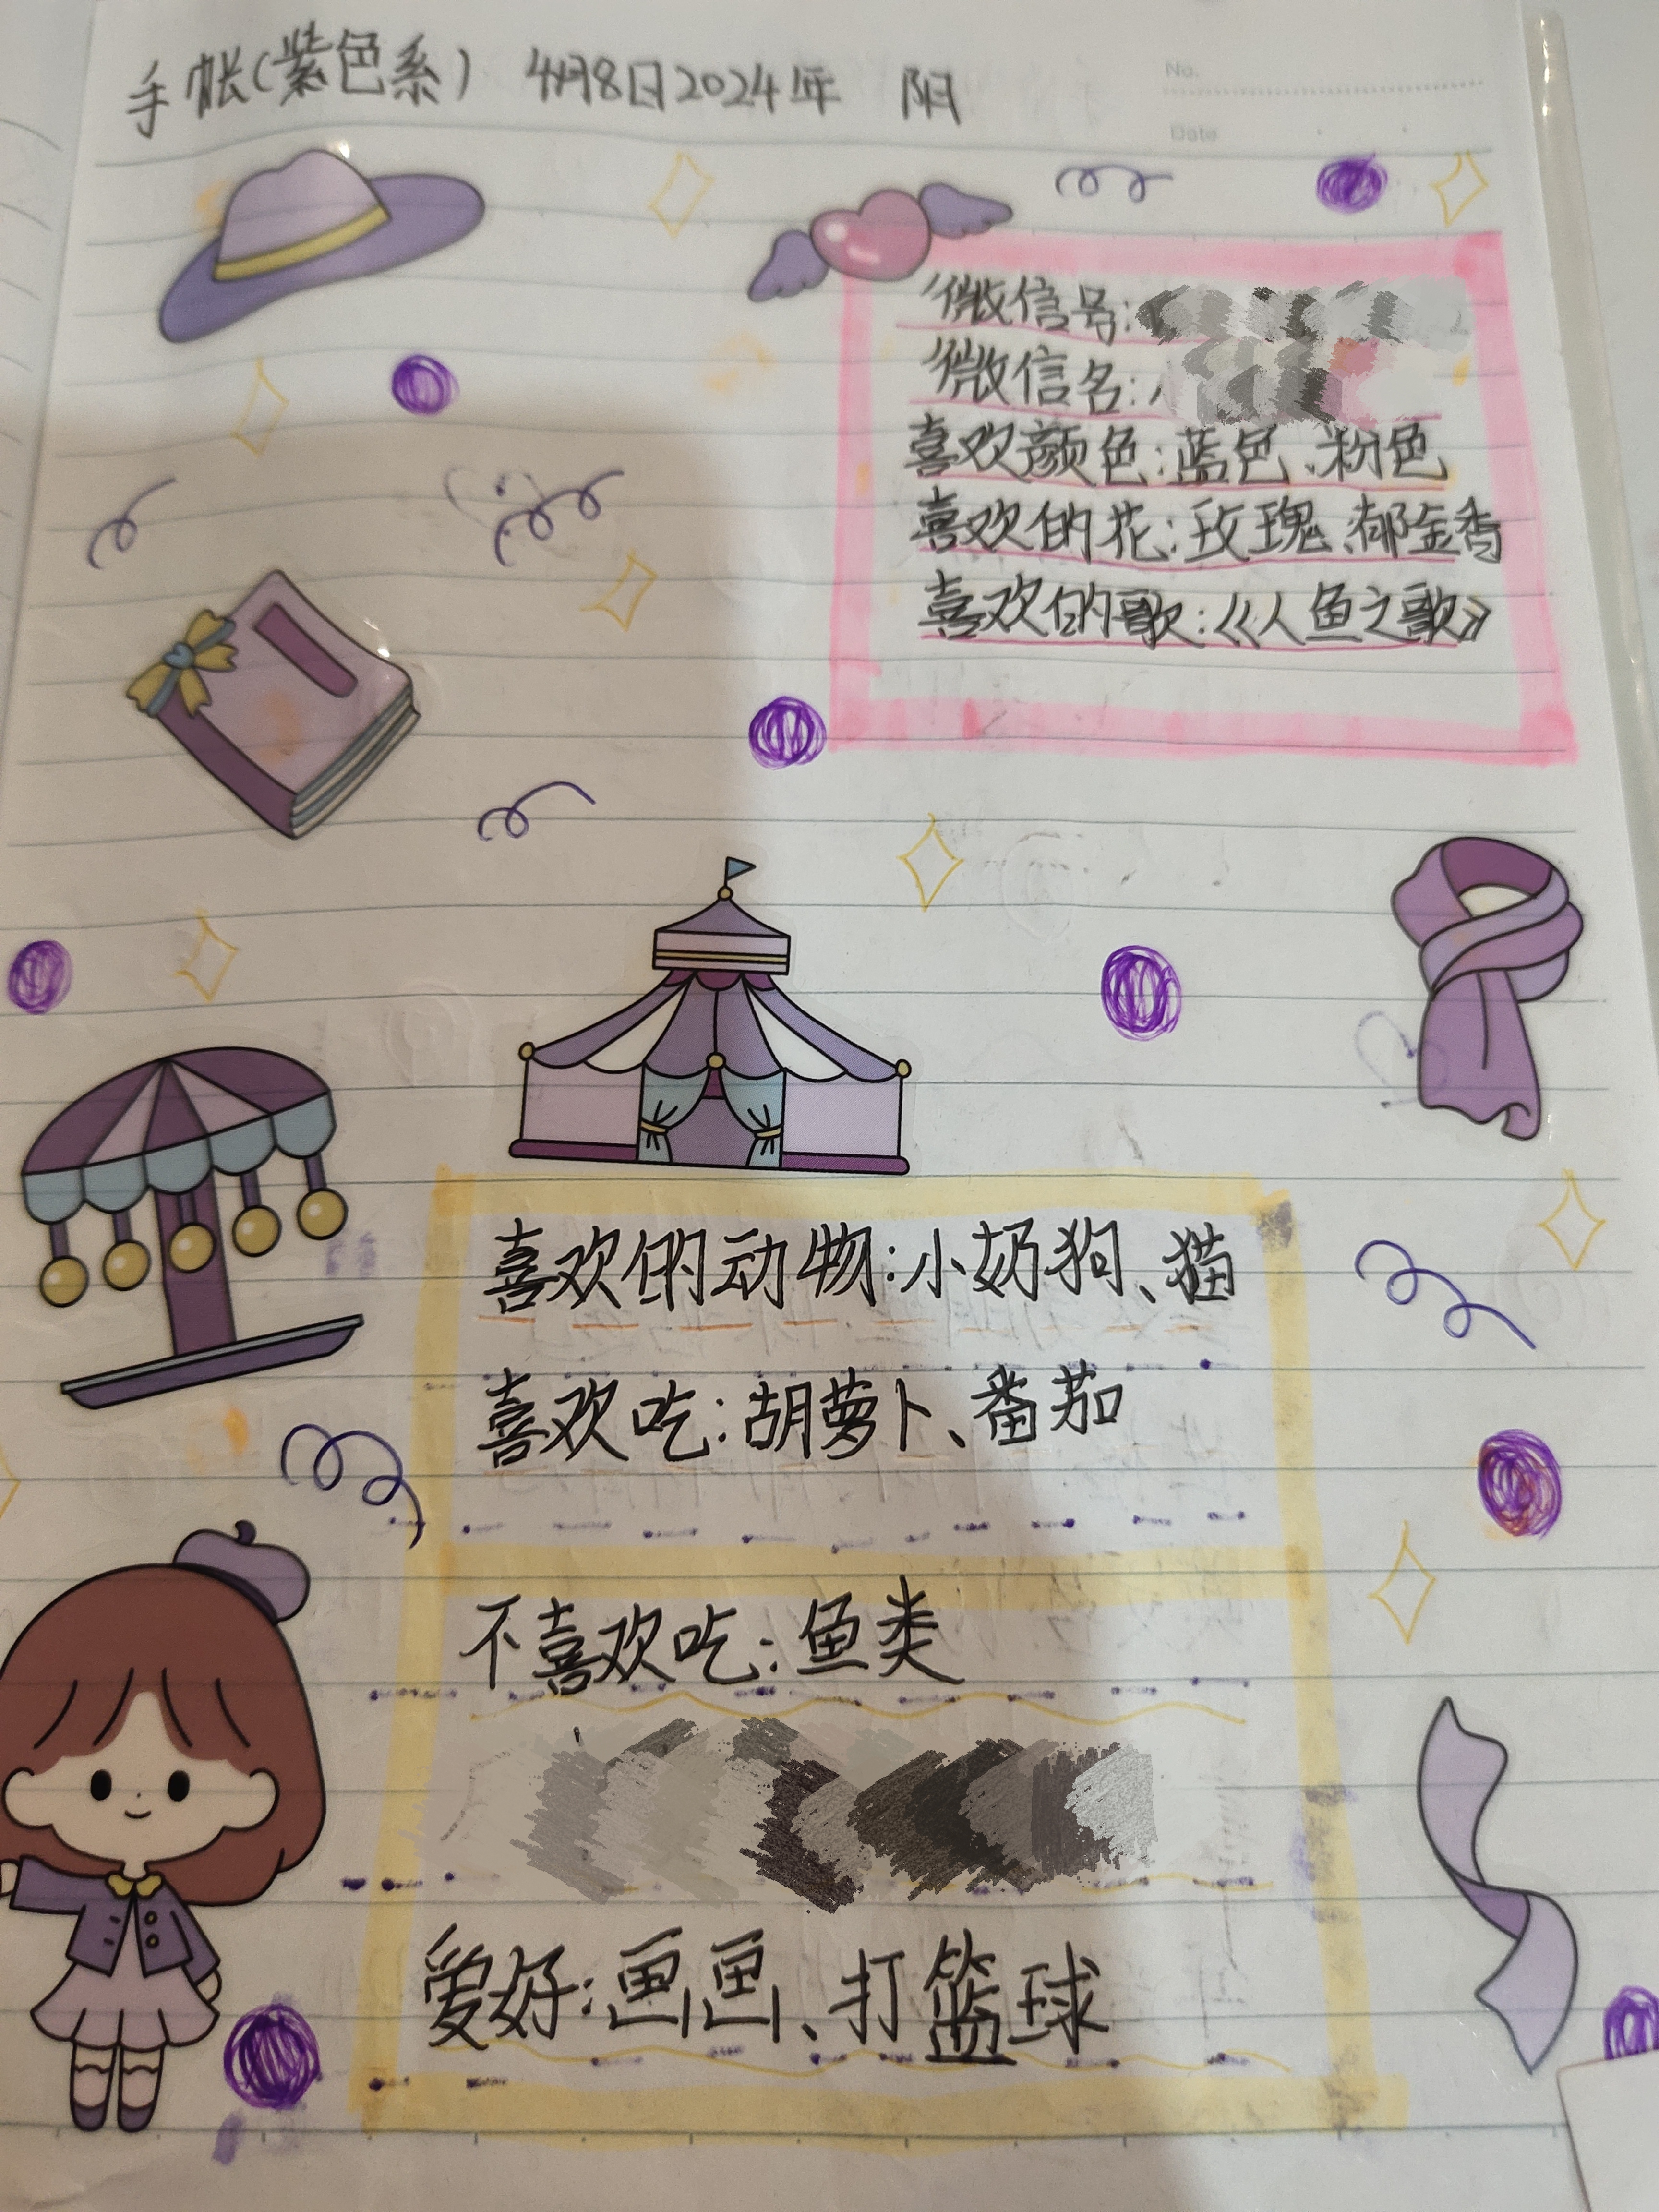 手帐(紫色系) 4月8日2024年 阳
No.
Date
微信号:
微信名:
喜欢颜色:蓝色、粉色
喜欢的花:玫瑰、郁金香
喜欢的歌:《人鱼之歌》
喜欢的动物:小奶狗、猫
喜欢吃:胡萝卜、番茄
不喜欢吃:鱼类
爱好:画画、打篮球